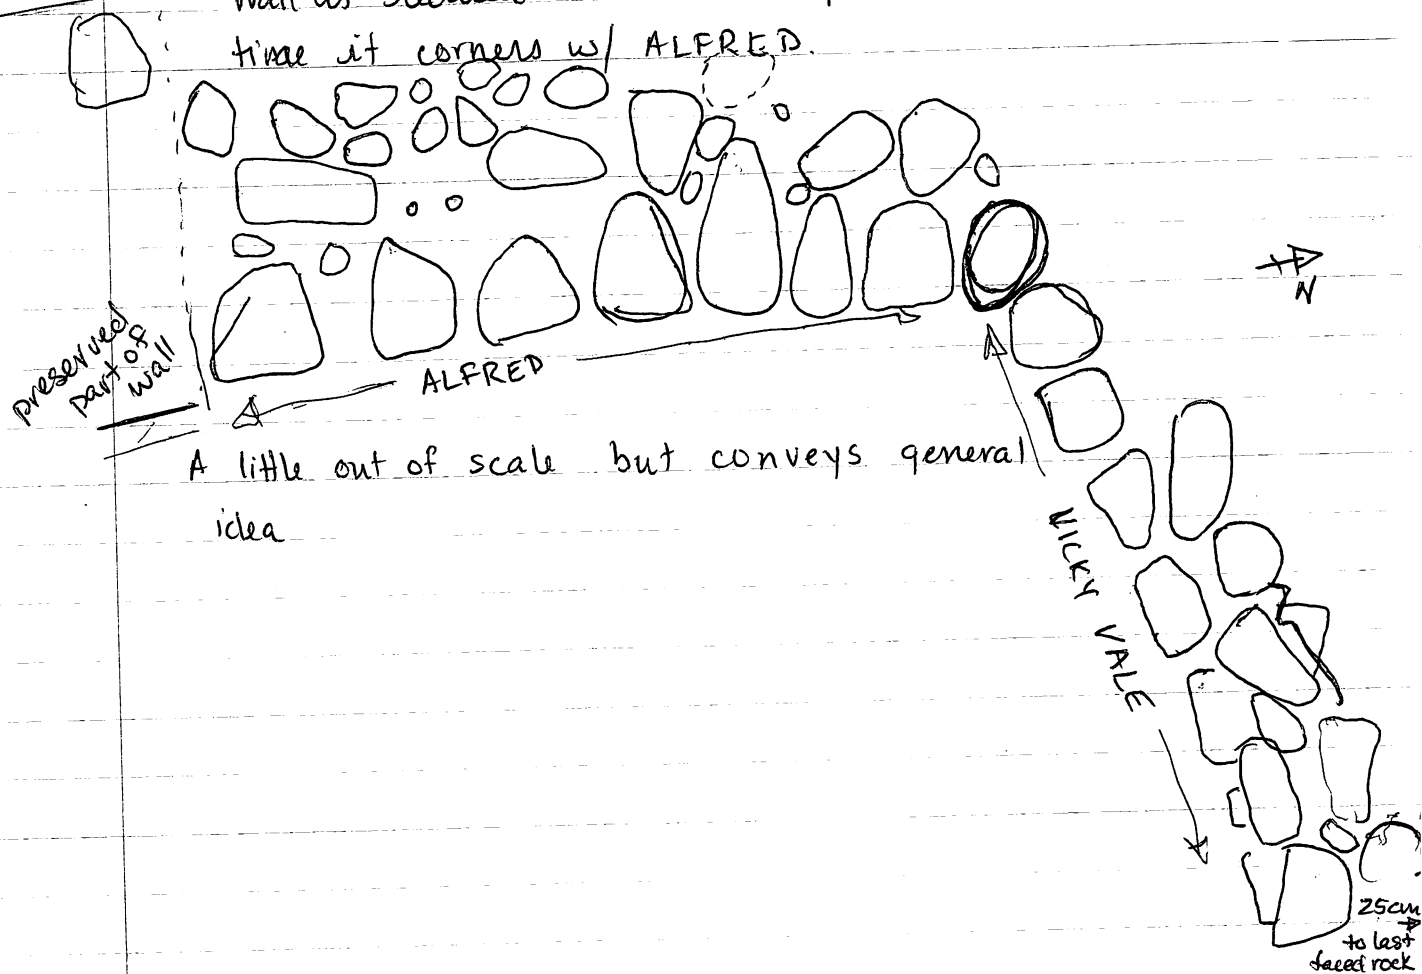 wall as
time it corners w/ ALFRED.
N
preserved
part of
wall
ALFRED
A little out of scale but conveys general
idea
NICKY VALE
25cm
to last
faced rock